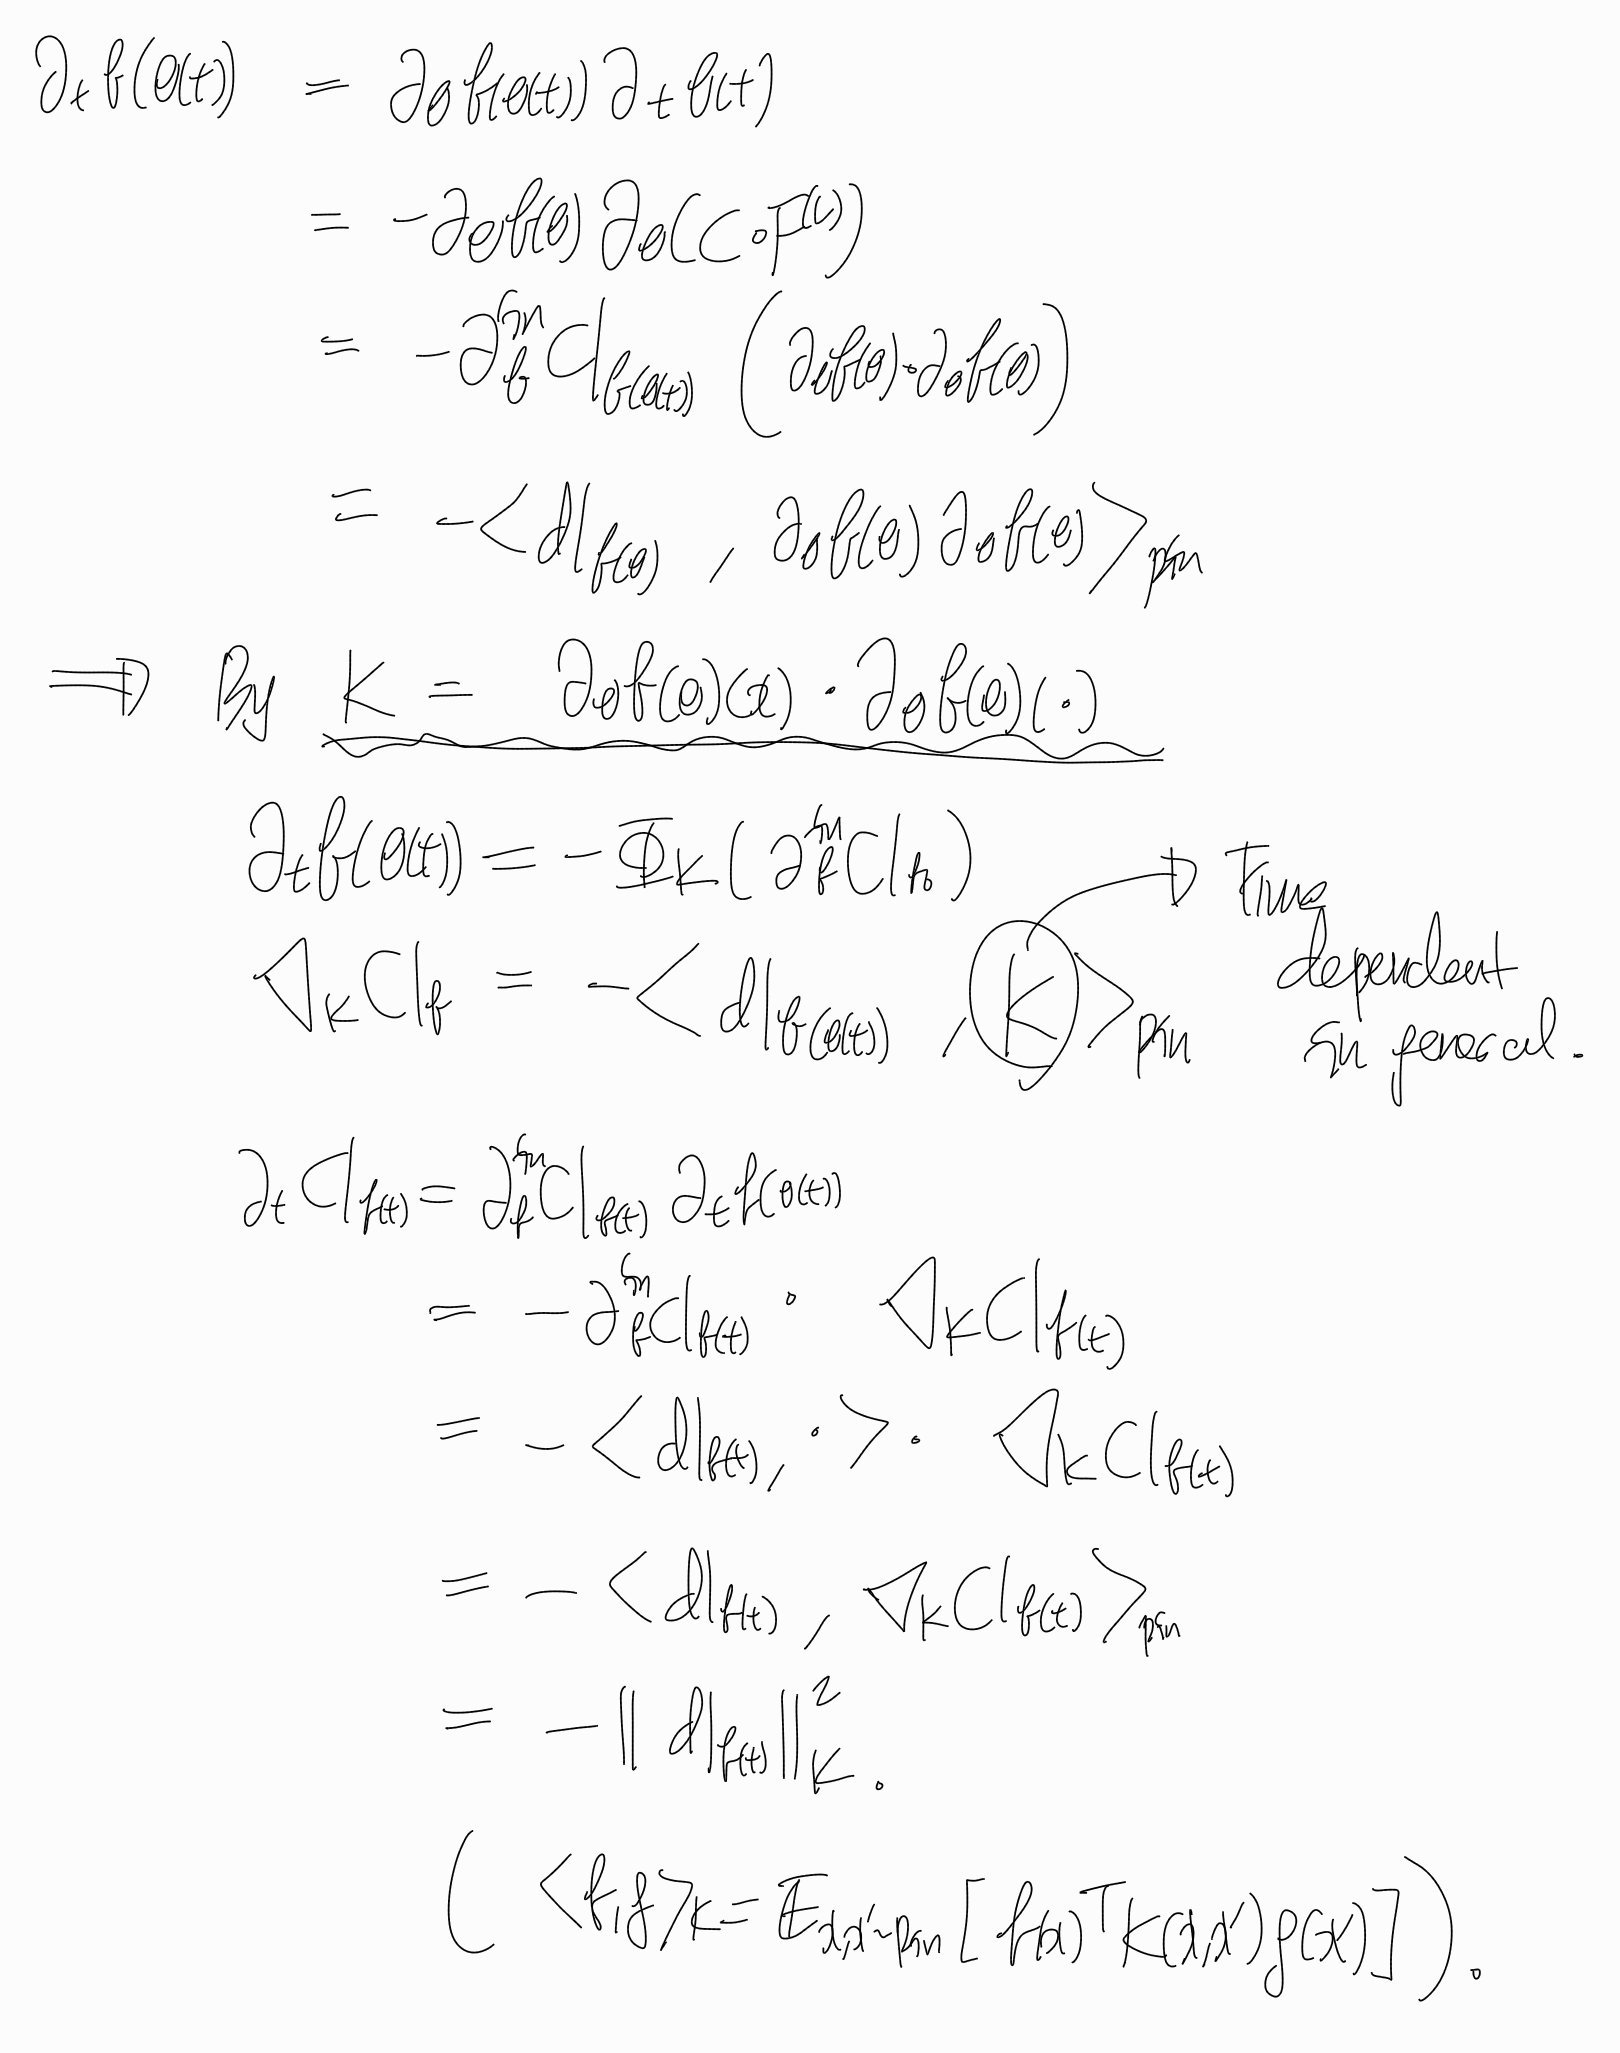 ∂_t f(θ(t)) = ∂_θ f(θ(t)) ∂_t θ(t)
= -∂_θ f(θ) ∂_θ(C∘F^{(L)})
= -∂_f^{in} C|_{f(θ(t))} (∂_θ f(θ)·∂_θ f(θ))
= -<d|_{f(θ)}, ∂_θ f(θ) ∂_θ f(θ)>_{pin}
⇒ By K = ∂_θ f(θ)(x)·∂_θ f(θ)(·)
∂_t f(θ(t)) = -Φ_K(∂_f^{in} C|_{f_0})
→ Time dependent in general.
∇_K C|_f = -<d|_{f(θ(t))}, K>_{pin}
∂_t C|_{f(t)} = ∂_f^{in} C|_{f(t)} ∂_t f(θ(t))
= -∂_f^{in} C|_{f(t)} · ∇_K C|_{f(t)}
= -<d|_{f(t)}, ·>· ∇_K C|_{f(t)}
= -<d|_{f(t)}, ∇_K C|_{f(t)}>_{pin}
= -‖d|_{f(t)}‖²_K.
(<f,g>_K = 𝔼_{x,x'~pin}[f(x)^T K(x,x')g(x')]).